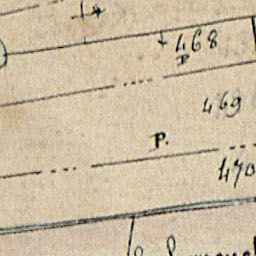 468
P
469
P.
470